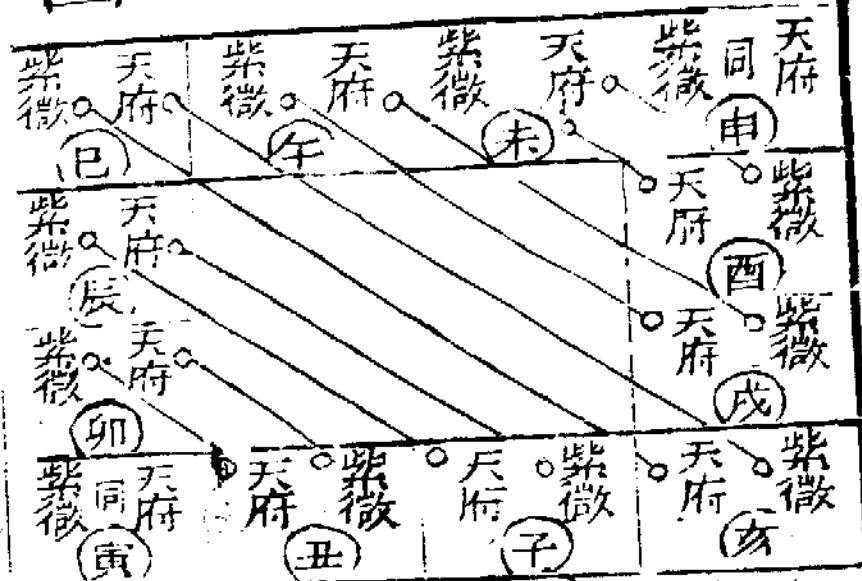 紫微 天府 紫微 天府 紫微 天府 紫微 同 天府
巳 午 未 申
紫微 天府 天府 紫微
辰 酉
紫微 天府 天府 紫微
卯 戌
紫微 同 天府 天府 紫微 天府 紫微 天府 紫微
寅 丑 子 亥